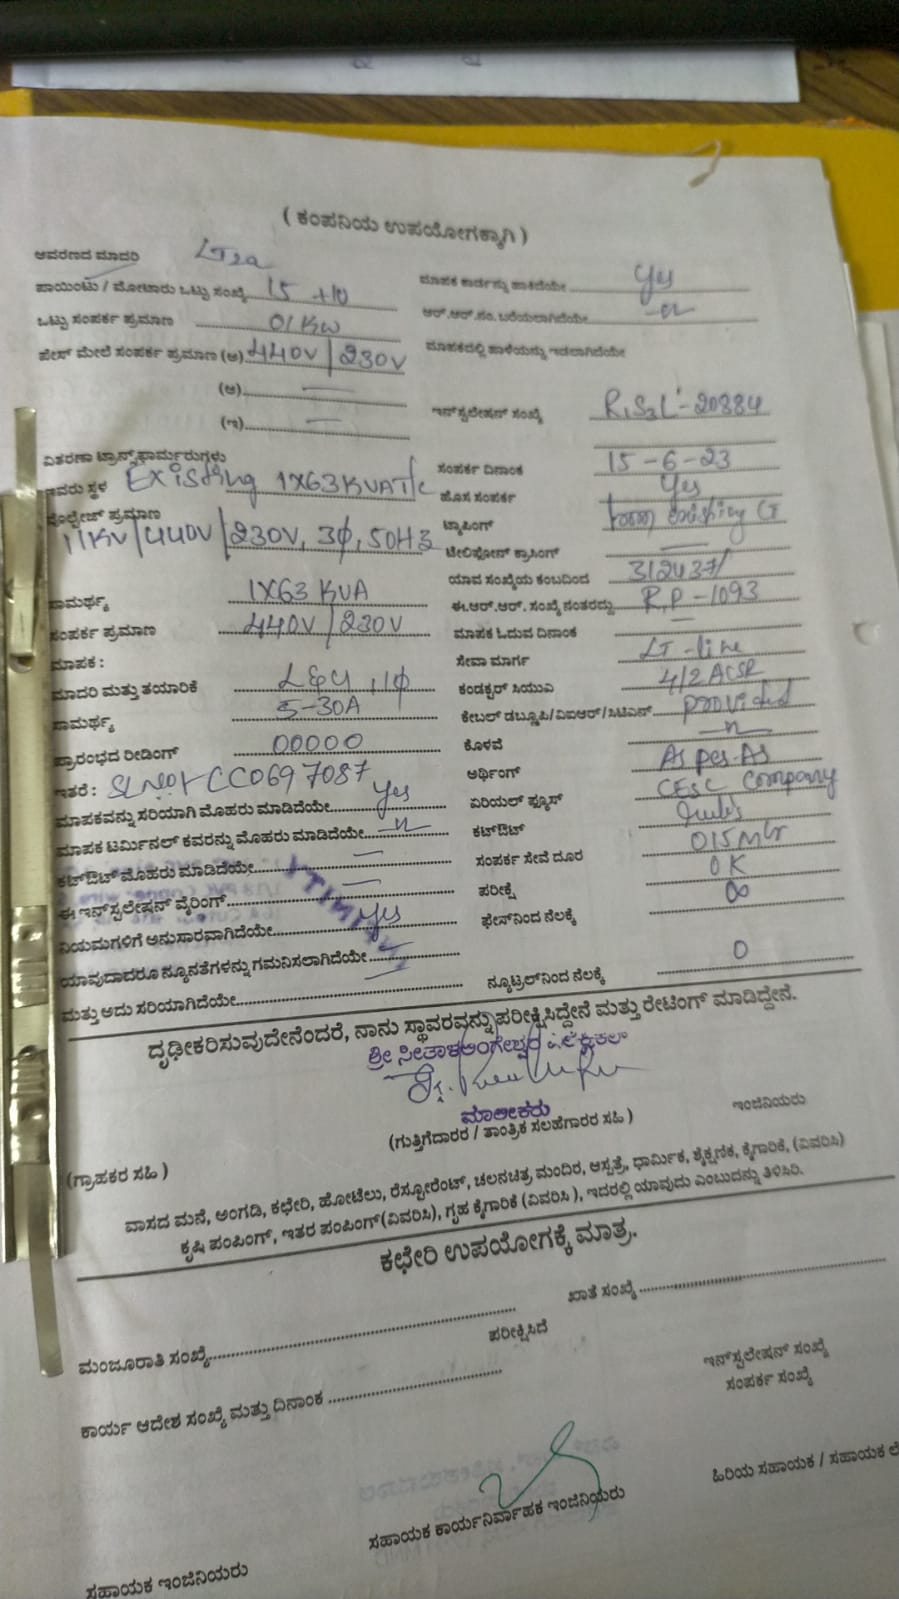 ( ಕಂಪನಿಯ ಉಪಯೋಗಕ್ಕಾಗಿ )
ಆವರಣದ ಮಾದರಿ LT2a
ಪಾಯಿಂಟು / ಮೋಟಾರು ಒಟ್ಟು ಸಂಖ್ಯೆ 15 ಮಾಪಕ ಕಾರ್ಡನ್ನು ಹಾಕಿದೆಯೇ Yes
ಒಟ್ಟು ಸಂಪರ್ಕ ಪ್ರಮಾಣ 01 KW ಆರ್.ಆರ್.ನಂ. ಬರೆಯಲಾಗಿದೆಯೇ
ಫೇಸ್ ಮೇಲೆ ಸಂಪರ್ಕ ಪ್ರಮಾಣ (ಅ) 440V / 230V ಮಾಪಕದಲ್ಲಿ ಹಾಳೆಯನ್ನು ಇಡಲಾಗಿದೆಯೇ
(ಆ) —
(ಇ) — ಇನ್‌ಸ್ಟಲೇಷನ್ ಸಂಖ್ಯೆ
ವಿತರಣಾ ಟ್ರಾನ್ಸ್‌ಫಾರ್ಮರುಗಳು ಸಂಪರ್ಕ ದಿನಾಂಕ 15-6-23
ಇವರು ಸ್ಥಳ Existing 1X63KVA T/c ಹೊಸ ಸಂಪರ್ಕ Yes
ವೋಲ್ಟೇಜ್ ಪ್ರಮಾಣ ಟ್ಯಾಪಿಂಗ್
11KV/440V/230V, 3ϕ, 50HZ ಟೆಲಿಫೋನ್ ಕ್ರಾಸಿಂಗ್ —
ಯಾವ ಸಂಖ್ಯೆಯ ಕಂಬದಿಂದ 312437/
ಸಾಮರ್ಥ್ಯ 1X63 KVA ಈ.ಆರ್.ಆರ್. ಸಂಖ್ಯೆ ನಂತರದ್ದು R.P-1093
ಸಂಪರ್ಕ ಪ್ರಮಾಣ 440V/230V ಮಾಪಕ ಓದುವ ದಿನಾಂಕ —
ಮಾಪಕ : ಸೇವಾ ಮಾರ್ಗ LT-line
ಮಾದರಿ ಮತ್ತು ತಯಾರಿಕೆ L&G, 1ϕ ಕಂಡಕ್ಟರ್ ಸಿಯುವಿ 4/2 ACSR
ಸಾಮರ್ಥ್ಯ 5-30A ಕೇಬಲ್ ಡಬ್ಲ್ಯೂಪಿ/ವಿಐಆರ್/ಸಿಟಿಎಸ್ provided
ಪ್ರಾರಂಭದ ರೀಡಿಂಗ್ 00000 ಕೊಳವೆ
ಇತರೆ : ಅರ್ಥಿಂಗ್ As per
ಮಾಪಕವನ್ನು ಸರಿಯಾಗಿ ಮೊಹರು ಮಾಡಿದೆಯೇ Yes ಏರಿಯಲ್ ಫ್ಯೂಸ್ CESC Company
ಮಾಪಕ ಟರ್ಮಿನಲ್ ಕವರನ್ನು ಮೊಹರು ಮಾಡಿದೆಯೇ ಕಟ್‌ಔಟ್ rules
ಕಟ್‌ಔಟ್ ಮೊಹರು ಮಾಡಿದೆಯೇ — ಸಂಪರ್ಕ ಸೇವೆ ದೂರ 015 Mtr
ಈ ಇನ್‌ಸ್ಟಲೇಷನ್ ವೈರಿಂಗ್ — ಪರೀಕ್ಷೆ OK
ನಿಯಮಗಳಿಗೆ ಅನುಸಾರವಾಗಿದೆಯೇ Yes ಫೇಸ್‌ನಿಂದ ನೆಲಕ್ಕೆ ∞
ಯಾವುದಾದರೂ ನ್ಯೂನತೆಗಳನ್ನು ಗಮನಿಸಲಾಗಿದೆಯೇ —
ಮತ್ತು ಅದು ಸರಿಯಾಗಿದೆಯೇ — ನ್ಯೂಟ್ರಲ್‌ನಿಂದ ನೆಲಕ್ಕೆ 0
ದೃಢೀಕರಿಸುವುದೇನೆಂದರೆ, ನಾನು ಸ್ಥಾವರವನ್ನು ಪರೀಕ್ಷಿಸಿದ್ದೇನೆ ಮತ್ತು ರೇಟಿಂಗ್ ಮಾಡಿದ್ದೇನೆ.
ಶ್ರೀ
ಮಾಲೀಕರು
(ಗ್ರಾಹಕರ ಸಹಿ ) (ಗುತ್ತಿಗೆದಾರರ / ತಾಂತ್ರಿಕ ಸಲಹೆಗಾರರ ಸಹಿ ) ಇಂಜಿನಿಯರು
ವಾಸದ ಮನೆ, ಅಂಗಡಿ, ಕಛೇರಿ, ಹೋಟೆಲು, ರೆಸ್ಟೋರೆಂಟ್, ಚಲನಚಿತ್ರ ಮಂದಿರ, ಆಸ್ಪತ್ರೆ, ಧಾರ್ಮಿಕ, ಶೈಕ್ಷಣಿಕ, ಕೈಗಾರಿಕೆ, (ವಿವರಿಸಿ)
ಕೃಷಿ ಪಂಪಿಂಗ್, ಇತರ ಪಂಪಿಂಗ್(ವಿವರಿಸಿ), ಗೃಹ ಕೈಗಾರಿಕೆ (ವಿವರಿಸಿ ), ಇದರಲ್ಲಿ ಯಾವುದು ಎಂಬುದನ್ನು ತಿಳಿಸಿರಿ.
ಕಛೇರಿ ಉಪಯೋಗಕ್ಕೆ ಮಾತ್ರ.
ಮಂಜೂರಾತಿ ಸಂಖ್ಯೆ ಖಾತೆ ಸಂಖ್ಯೆ
ಪರೀಕ್ಷಿಸಿದೆ
ಕಾರ್ಯ ಆದೇಶ ಸಂಖ್ಯೆ ಮತ್ತು ದಿನಾಂಕ ಇನ್‌ಸ್ಟಲೇಷನ್ ಸಂಖ್ಯೆ
ಸಂಪರ್ಕ ಸಂಖ್ಯೆ
ಸಹಾಯಕ ಇಂಜಿನಿಯರು ಸಹಾಯಕ ಕಾರ್ಯನಿರ್ವಾಹಕ ಇಂಜಿನಿಯರು ಹಿರಿಯ ಸಹಾಯಕ / ಸಹಾಯಕ ಲೆ